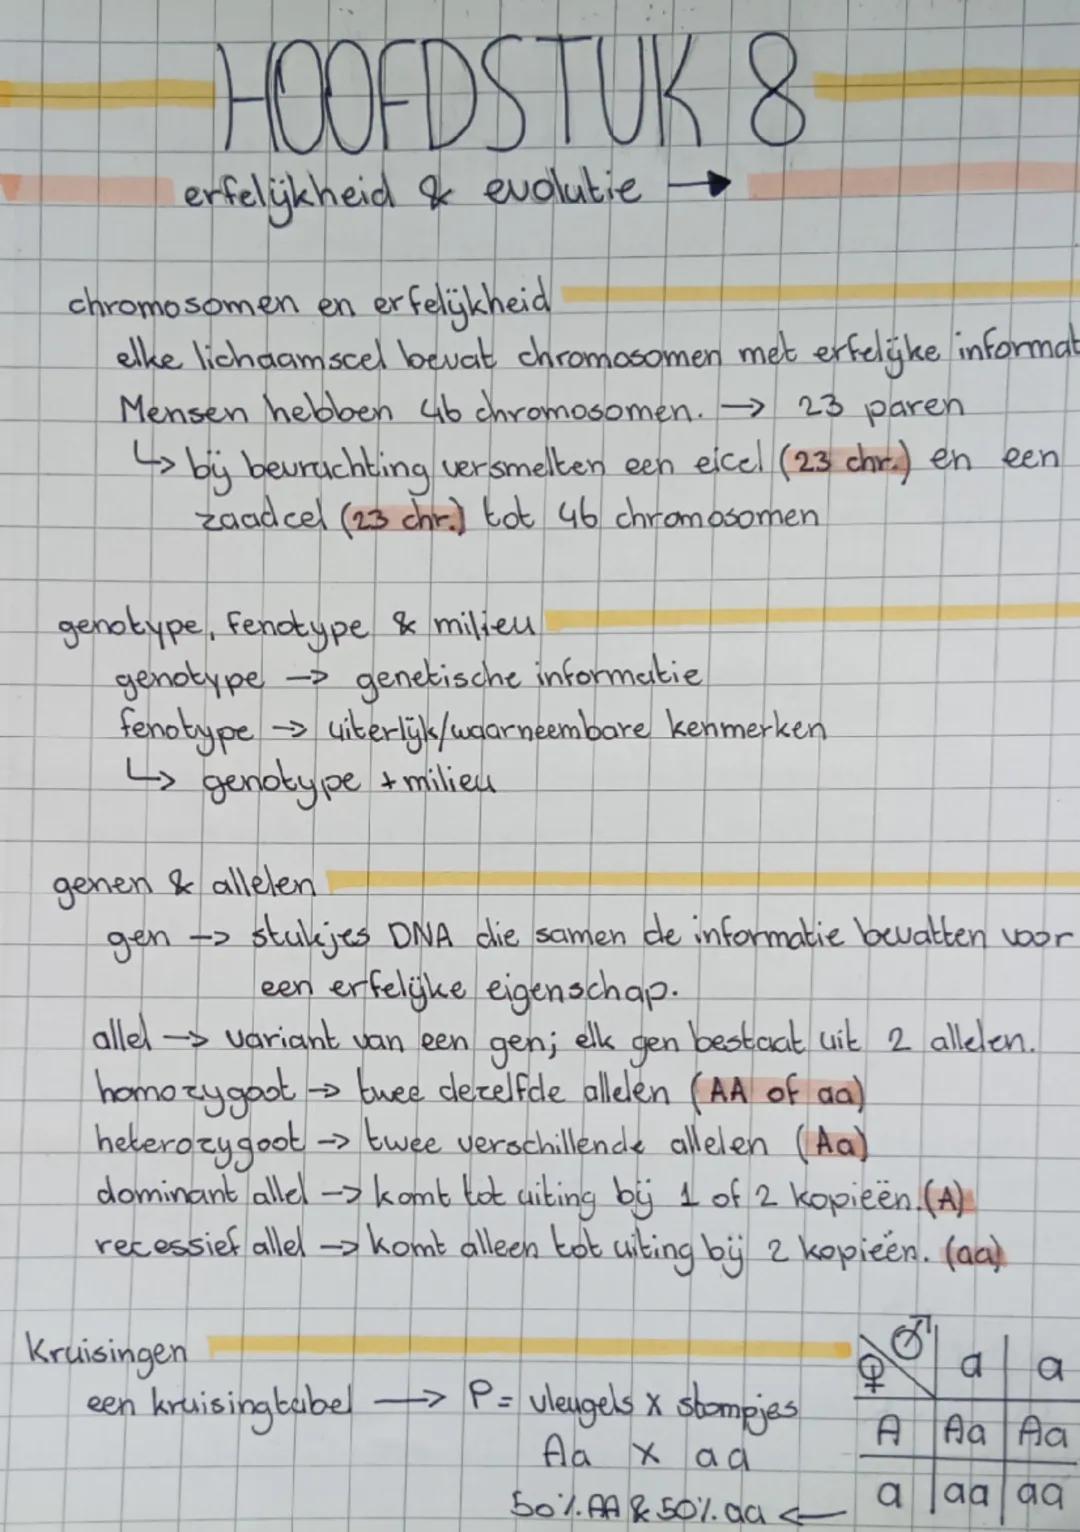 HOOFDSTUK 8
erfelijkheid & evolutie →
chromosomen en erfelijkheid
elke lichaamscel bevat chromosomen met erfelijke informat
Mensen hebben 46 chromosomen. → 23 paren
↳ bij bevruchting versmelten een eicel (23 chr.) en een
zaadcel (23 chr.) tot 46 chromosomen
genotype, fenotype & milieu
genotype → genetische informatie
fenotype → uiterlijk/waarneembare kenmerken
↳ genotype + milieu
genen & allelen
gen → stukjes DNA die samen de informatie bevatten voor
een erfelijke eigenschap.
allel → variant van een gen; elk gen bestaat uit 2 allelen.
homozygoot → twee dezelfde allelen (AA of aa)
heterozygoot → twee verschillende allelen (Aa)
dominant allel → komt tot uiting bij 1 of 2 kopieën. (A)
recessief allel → komt alleen tot uiting bij 2 kopieën. (aa)
Kruisingen
een kruisingtabel → P = vleugels x stompjes
Aa x aa
50% AA & 50% aa ←
♀ ♂ a a
A Aa Aa
a aa aa